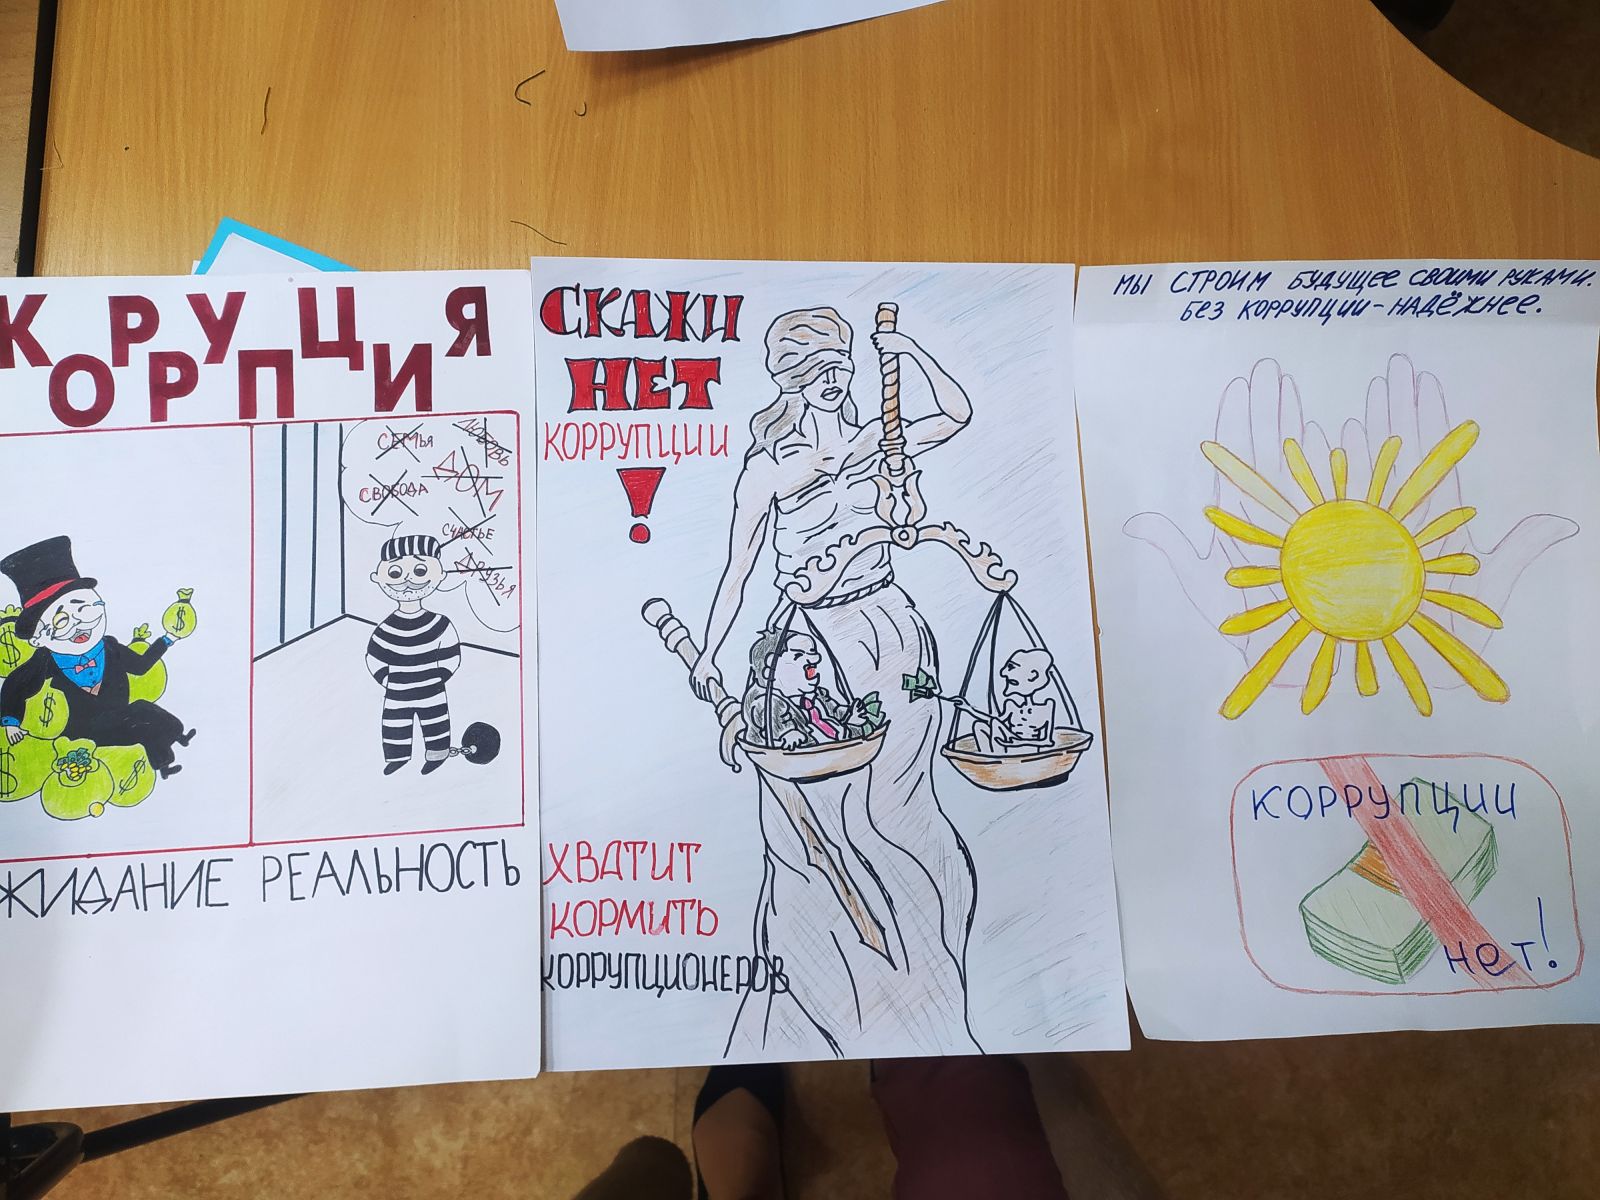 КОРРУПЦИЯ
СЕМЬЯ
ЛЮБОВЬ
СВОБОДА
ДОМ
СЧАСТЬЕ
ДРУЗЬЯ
ЖИДАНИЕ РЕАЛЬНОСТЬ
СКАЖИ
НЕТ
КОРРУПЦИИ
!
ХВАТИТ
КОРМИТЬ
КОРРУПЦИОНЕРОВ
МЫ СТРОИМ БУДУЩЕЕ СВОИМИ РУКАМИ.
БЕЗ КОРРУПЦИИ - НАДЁЖНЕЕ.
КОРРУПЦИИ
НЕТ!